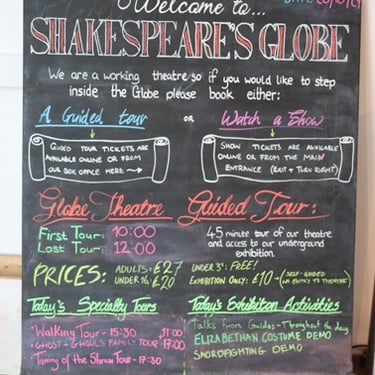 Welcome to...
DATE
SHAKESPEARE'S GLOBE
We are a working theatre so if you would like to step
inside the Globe please book either:
A Guided tour
or
Watch a Show
GUIDED TOUR TICKETS ARE
AVAILABLE ONLINE OR FROM
OUR BOX OFFICE HERE →
SHOW TICKETS ARE AVAILABLE
ONLINE OR FROM THE MAIN
ENTRANCE (EXIT + TURN RIGHT)
Globe Theatre Guided Tour:
First Tour: 10:00
Last Tour: 12:00
45 minute tour of our theatre
and access to our underground
exhibition.
PRICES:
ADULTS = £27
UNDER 16 = £20
UNDER 5s: FREE!
EXHIBITION ONLY: £10 → (SELF-GUIDED
NO ENTRY TO THEATRE)
Today's Specialty Tours
Walking Tour - 15:30 11:00
• GHOST + GHOULS FAMILY TOUR 17:00
Taming of the Shrew Tour - 17:30
Today's Exhibition Activities
Talks from Guides - Throughout the day
ELIZABETHAN COSTUME DEMO
SWORDFIGHTING DEMO